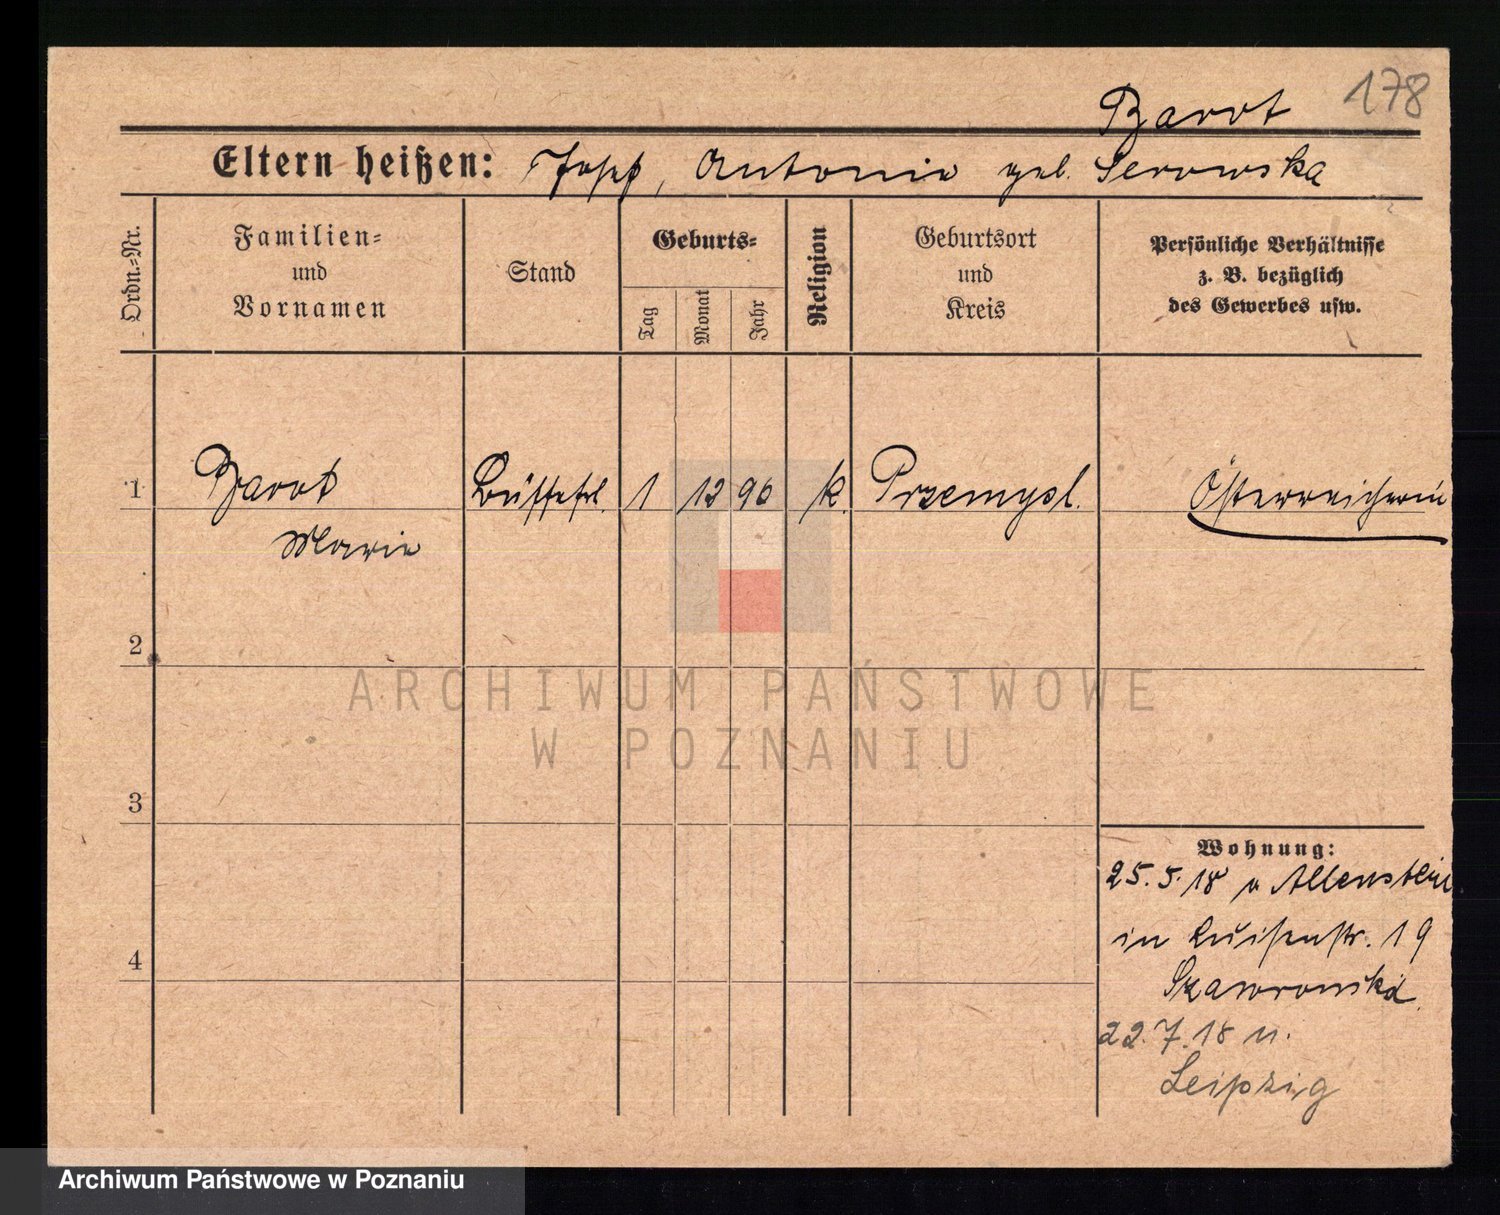 178
Barot
Eltern heißen: Josef, Antonie geb. Serowska
Ordn.-Nr.
Familien-
und
Vornamen
Stand
Geburts-
Tag
Monat
Jahr
Religion
Geburtsort
und
Kreis
Persönliche Verhältnisse
z. B. bezüglich
des Gewerbes usw.
1 Barot Büffetfrl. 1 12 96 k. Przemysl. Österreicherin
Marie
2
3
4
Wohnung:
25.5.18 v Allenstein
in Luisenstr. 19
22.7.18 n.
Leipzig
ARCHIWUM PAŃSTWOWE
W POZNANIU
Archiwum Państwowe w Poznaniu